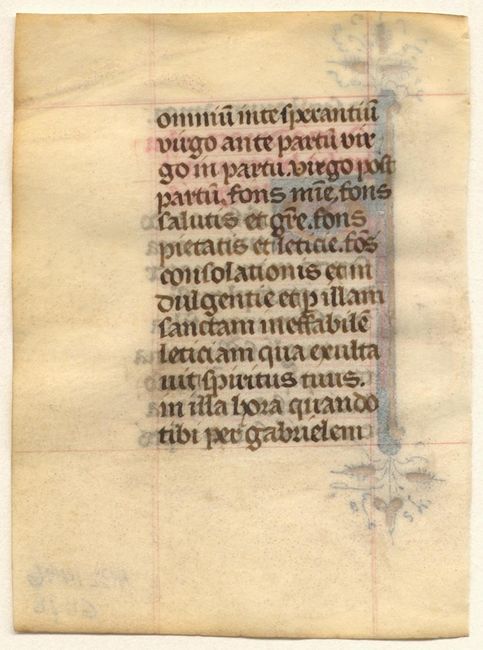 omniū in te sperantiū
virgo ante partū vir
go in partu. virgo post
partū, fons mīe, fons
salutis et grē. fons
pietatis et leticie. fōs
consolationis et in
dulgentie et ꝑ illam
sanctam ineffabilē
leticiam qua exulta
uit spiritus tuus.
in illa hora quando
tibi per gabrielem